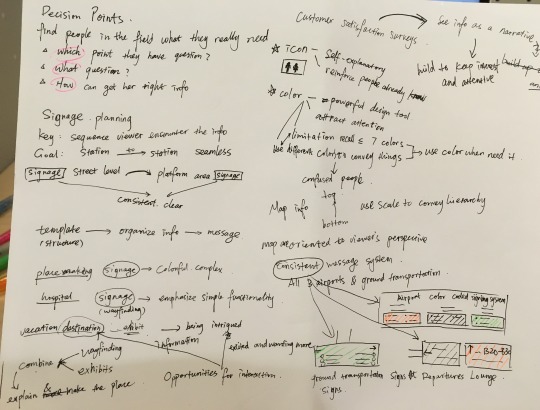 Decision Points.
find people in the field what they really need
Which point they have question?
What question?
How can get her right info
Signage planning
Key: sequence viewer encounter the info
Goal: Station to station seamless
signage street level platform area signage
consistent. clear
template → organize info → message
(structure)
place making signage → Colorful complex
hospital signage → emphasize simple functionality.
(wayfinding)
vacation/destination exhibit → being intrigued
information
combine wayfinding
exhibits
exited and wanting more
& make the place
explain
Opportunities for interaction.
Customer satisfaction surveys
See info as a narrative
build to keep interest
and attentive
icon — Self-explanatory
reinforce people already
color → powerful design tool
attract attention
limitation recall ≤ 7 colors
use different colors to convey things → use color when need it.
confused people.
Map info top
bottom
use scale to convey hierarchy
map are oriented to viewer's perspective
Consistent message system.
All 3 airports & ground transportation.
Airport color coded signing system
↑ B20-B30
ground transportation signs
Signs
Departures
Lounge.